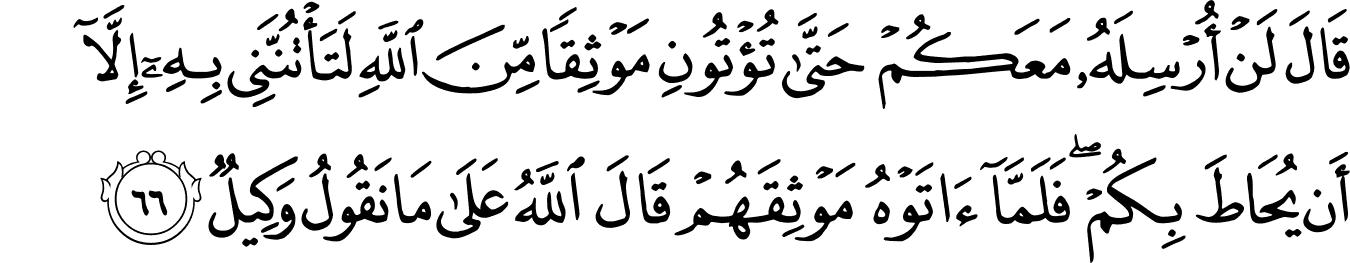 قَالَ لَنْ أُرْسِلَهُۥ مَعَكُمْ حَتَّىٰ تُؤْتُونِ مَوْثِقًا مِّنَ ٱللَّهِ لَتَأْتُنَّنِى بِهِۦٓ إِلَّآ
أَن يُحَاطَ بِكُمْ ۖ فَلَمَّآ ءَاتَوْهُ مَوْثِقَهُمْ قَالَ ٱللَّهُ عَلَىٰ مَا نَقُولُ وَكِيلٌ ٦٦